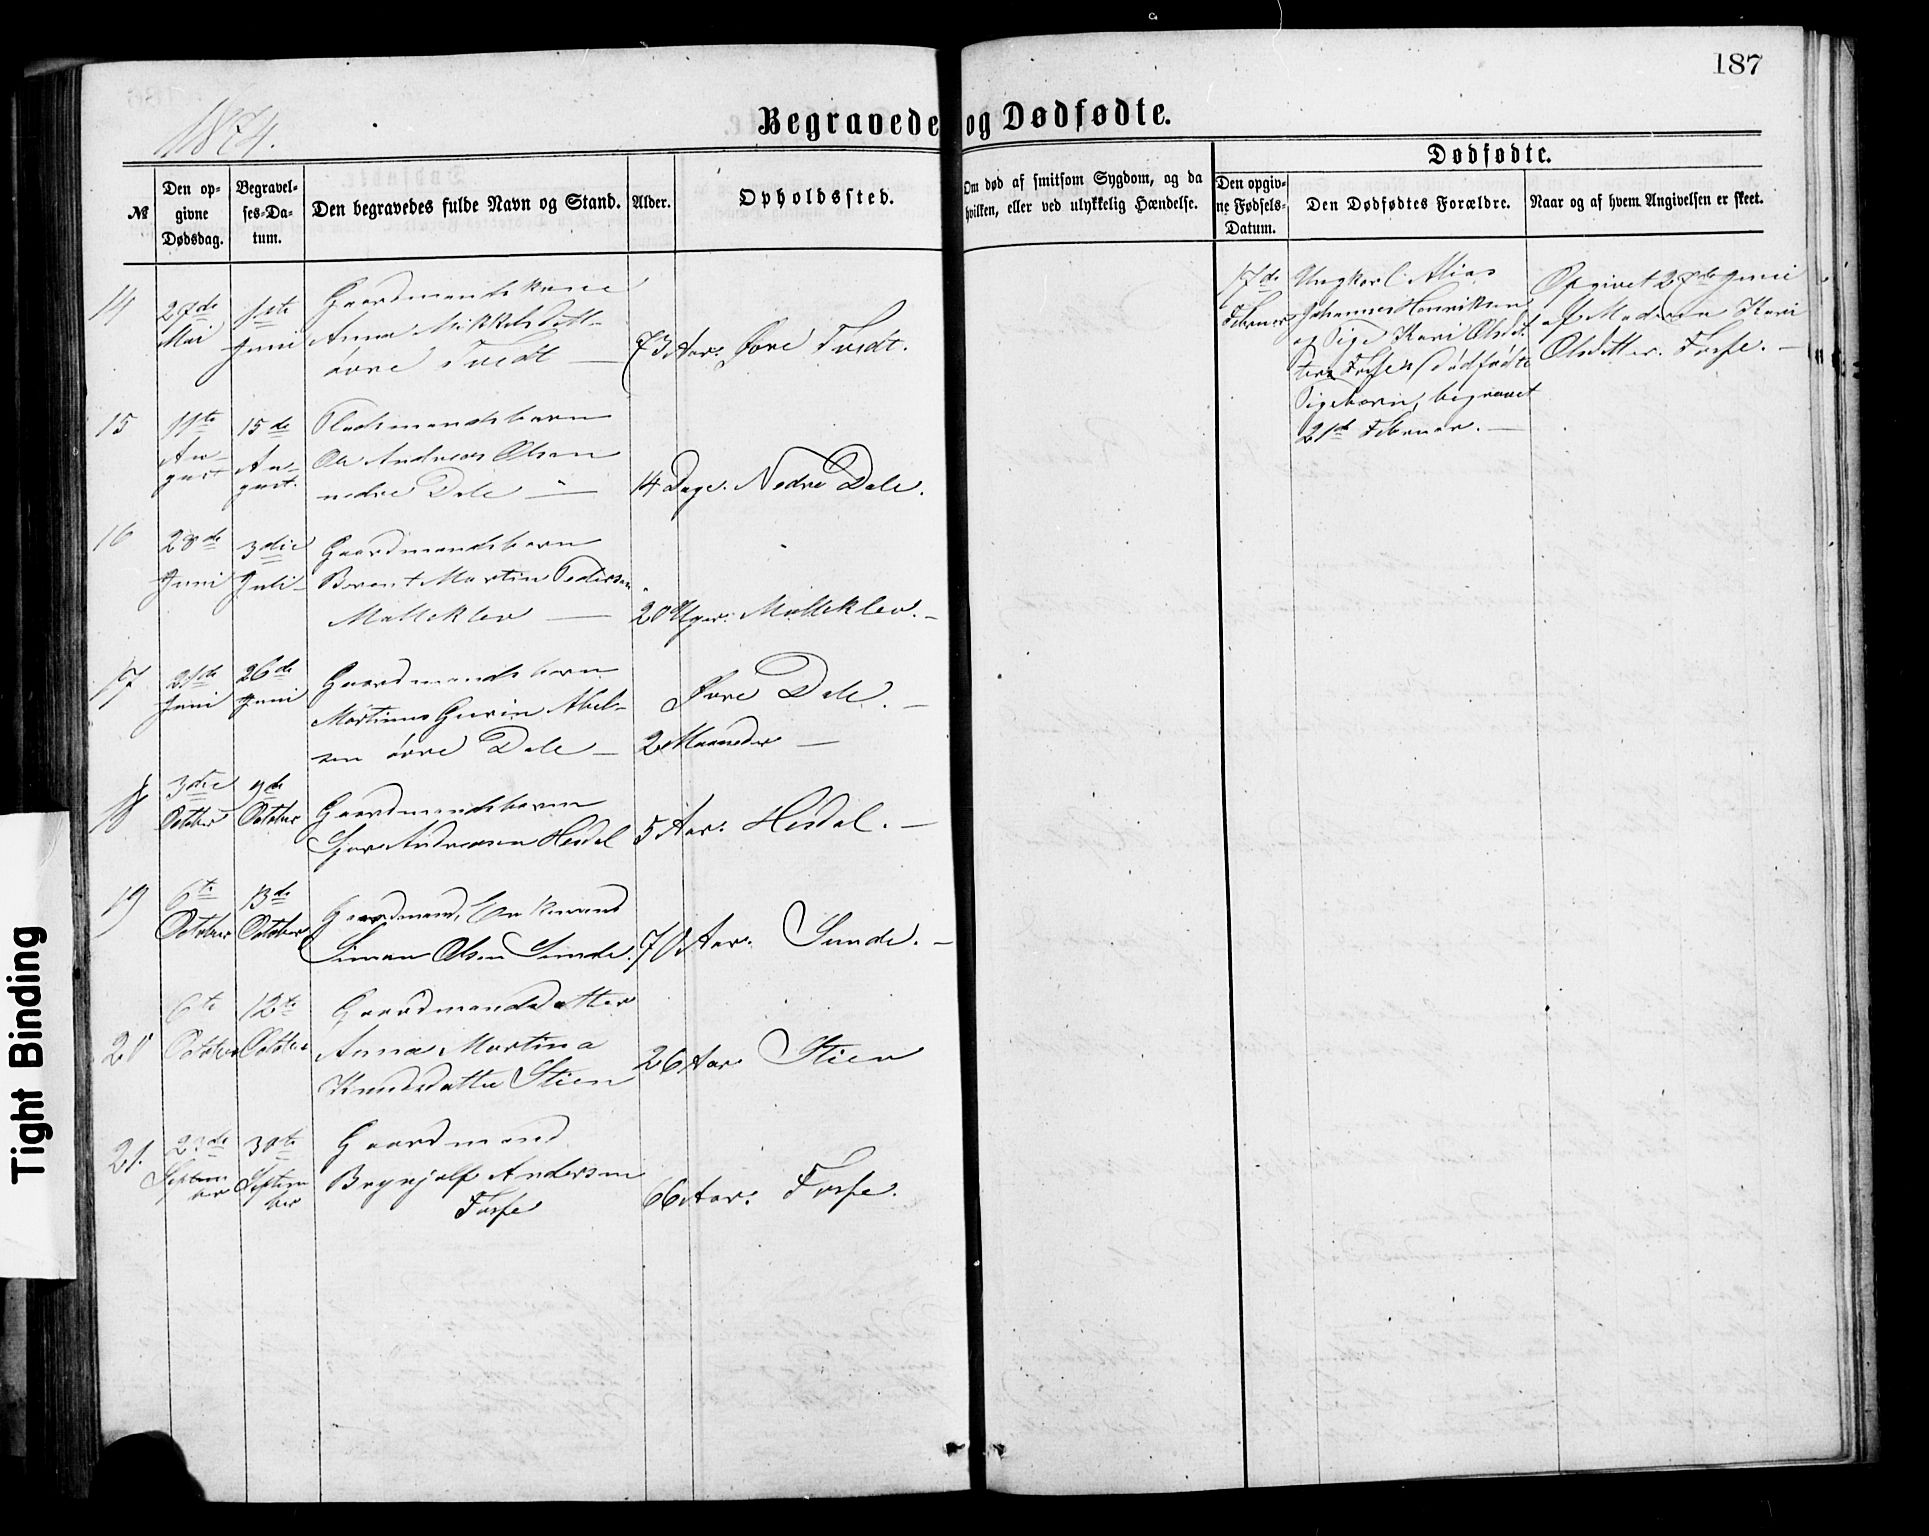 187
1874.
Begravede og Dødfødte.
Dødfødte.
№
Den op-
givne
Dødsdag.
Begravel-
ses-Da-
tum.
Den begravedes fulde Navn og Stand.
Alder.
Opholdssted.
Om død af smitsom Sygdom, og da
hvilken, eller ved ulykkelig Hændelse.
Den opgiv-
ne Fødsels-
Datum.
Den Dødfødtes Forældre.
Naar og af hvem Angivelsen er skeet.
14
27de
Mai
1ste
Juni
Gaardmandskone
Anna Mikkelsdatt-
øvre Tvedt —
73 Aar. Øvre Tvedt.
17de
Februar
Ungkarl Alias
Johannes Henriksen
og Pige Kari Olsdat
ter Fosse (dødfødte
Pigebarn, begravet
21de Februar. —
Opgivet 27de Juni
af Moderen Kari
Olsdatter. Fosse. —
15
11te
Au-
gust
15de
Au-
gust.
Pladsmandsbarn
Ole Andreas Olsen
nedre Dale —
14 Dage. Nedre Dale.
16
28de
Juni
3die
Juli
Gaardmandsbarn
Berent Martin Pedersen
Molleklev —
20 Uger. Molleklev. —
17
21de
Juni
26de
Juni
Gaardmandsbarn
Martinus Abel-
sen øvre Dale —
Øvre Dale. —
2 Maaneder —
18
3die
October
9de
October
Gaardmandsbarn
Andreasen Hesdal
5 Aar. Hesdal. —
19
6te
October
13de
October
Gaardmand, Enkemand
Simon Olsen Sunde.
70 Aar. Sunde. —
20
6te
October
12te
October
Gaardmandsdatter
Anna Martina
Knudsdatter Stien
26 Aar Stien
21.
23de
Septem
ber
30te
Septem
ber
Gaardmand
Brynjolf Andersen
Fosse
66 Aar. Fosse.
Tight Binding